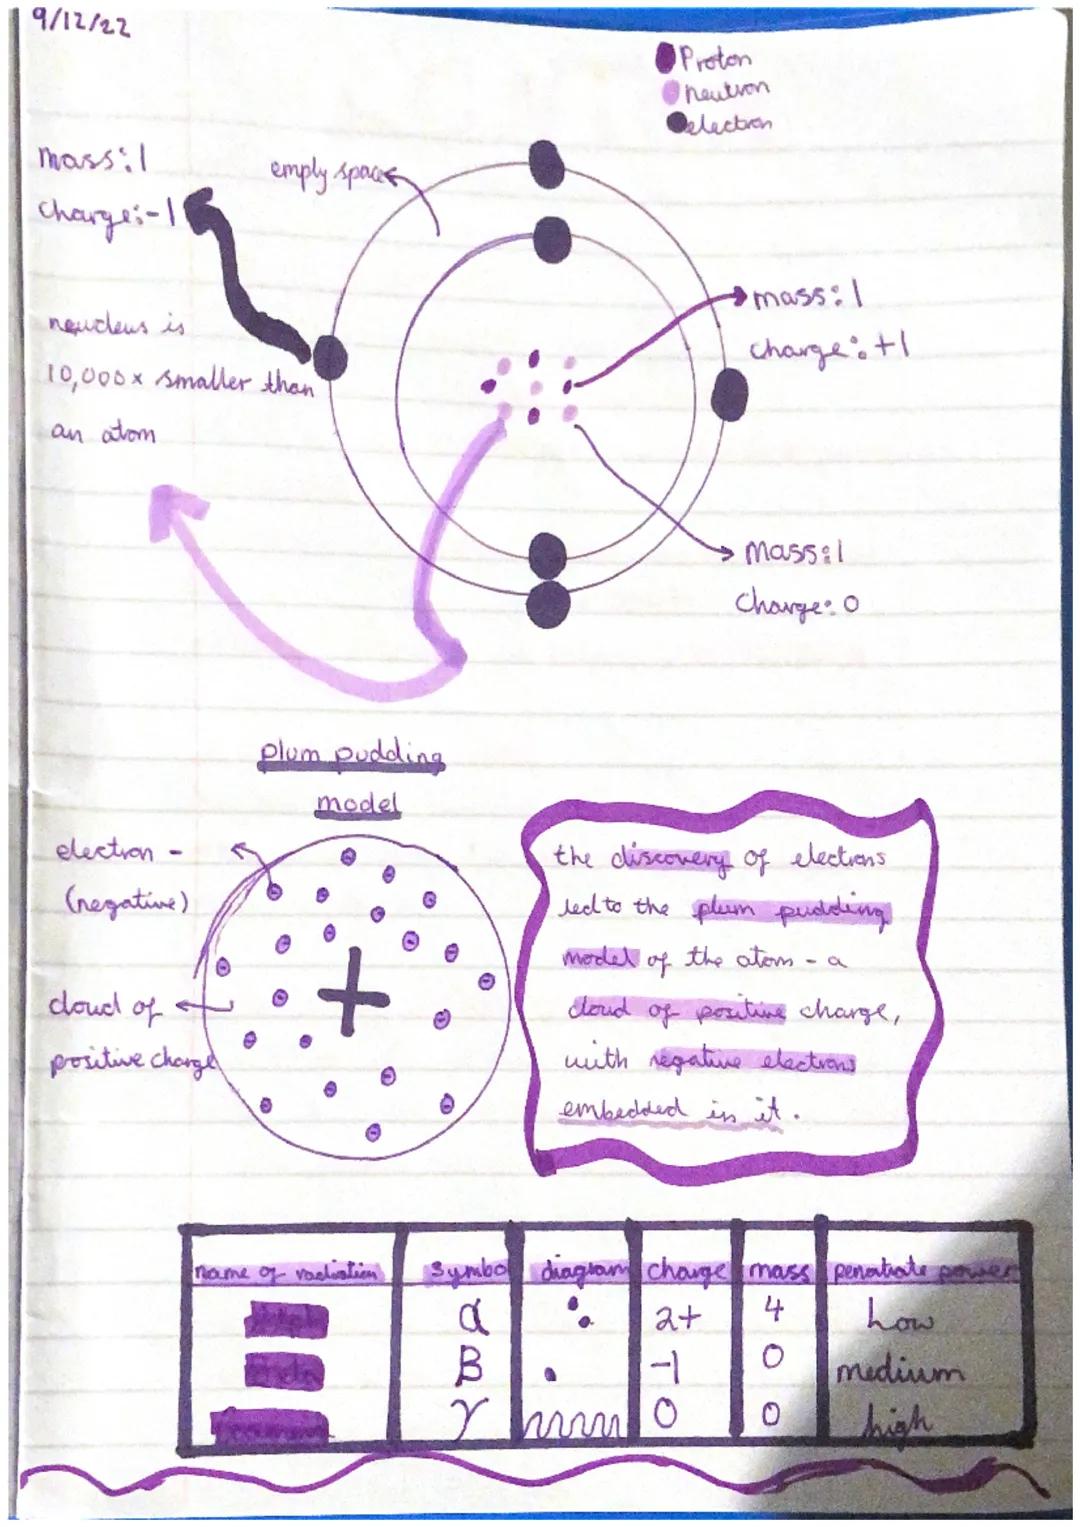 9/12/22
Proton
neutron
electron
mass:1
charge:-1
empty space
mass:1
charge:+1
neucleus is
10,000x smaller than
an atom
mass:1
charge:0
plum pudding
model
electron -
(negative)
cloud of
positive charge
the discovery of electrons
led to the plum pudding
model of the atom - a
cloud of positive charge,
with negative electrons
embedded in it.
name of radiation symbol diagram charge mass penatrate power
α 2+ 4 low
B -1 0 medium
γ 0 0 high